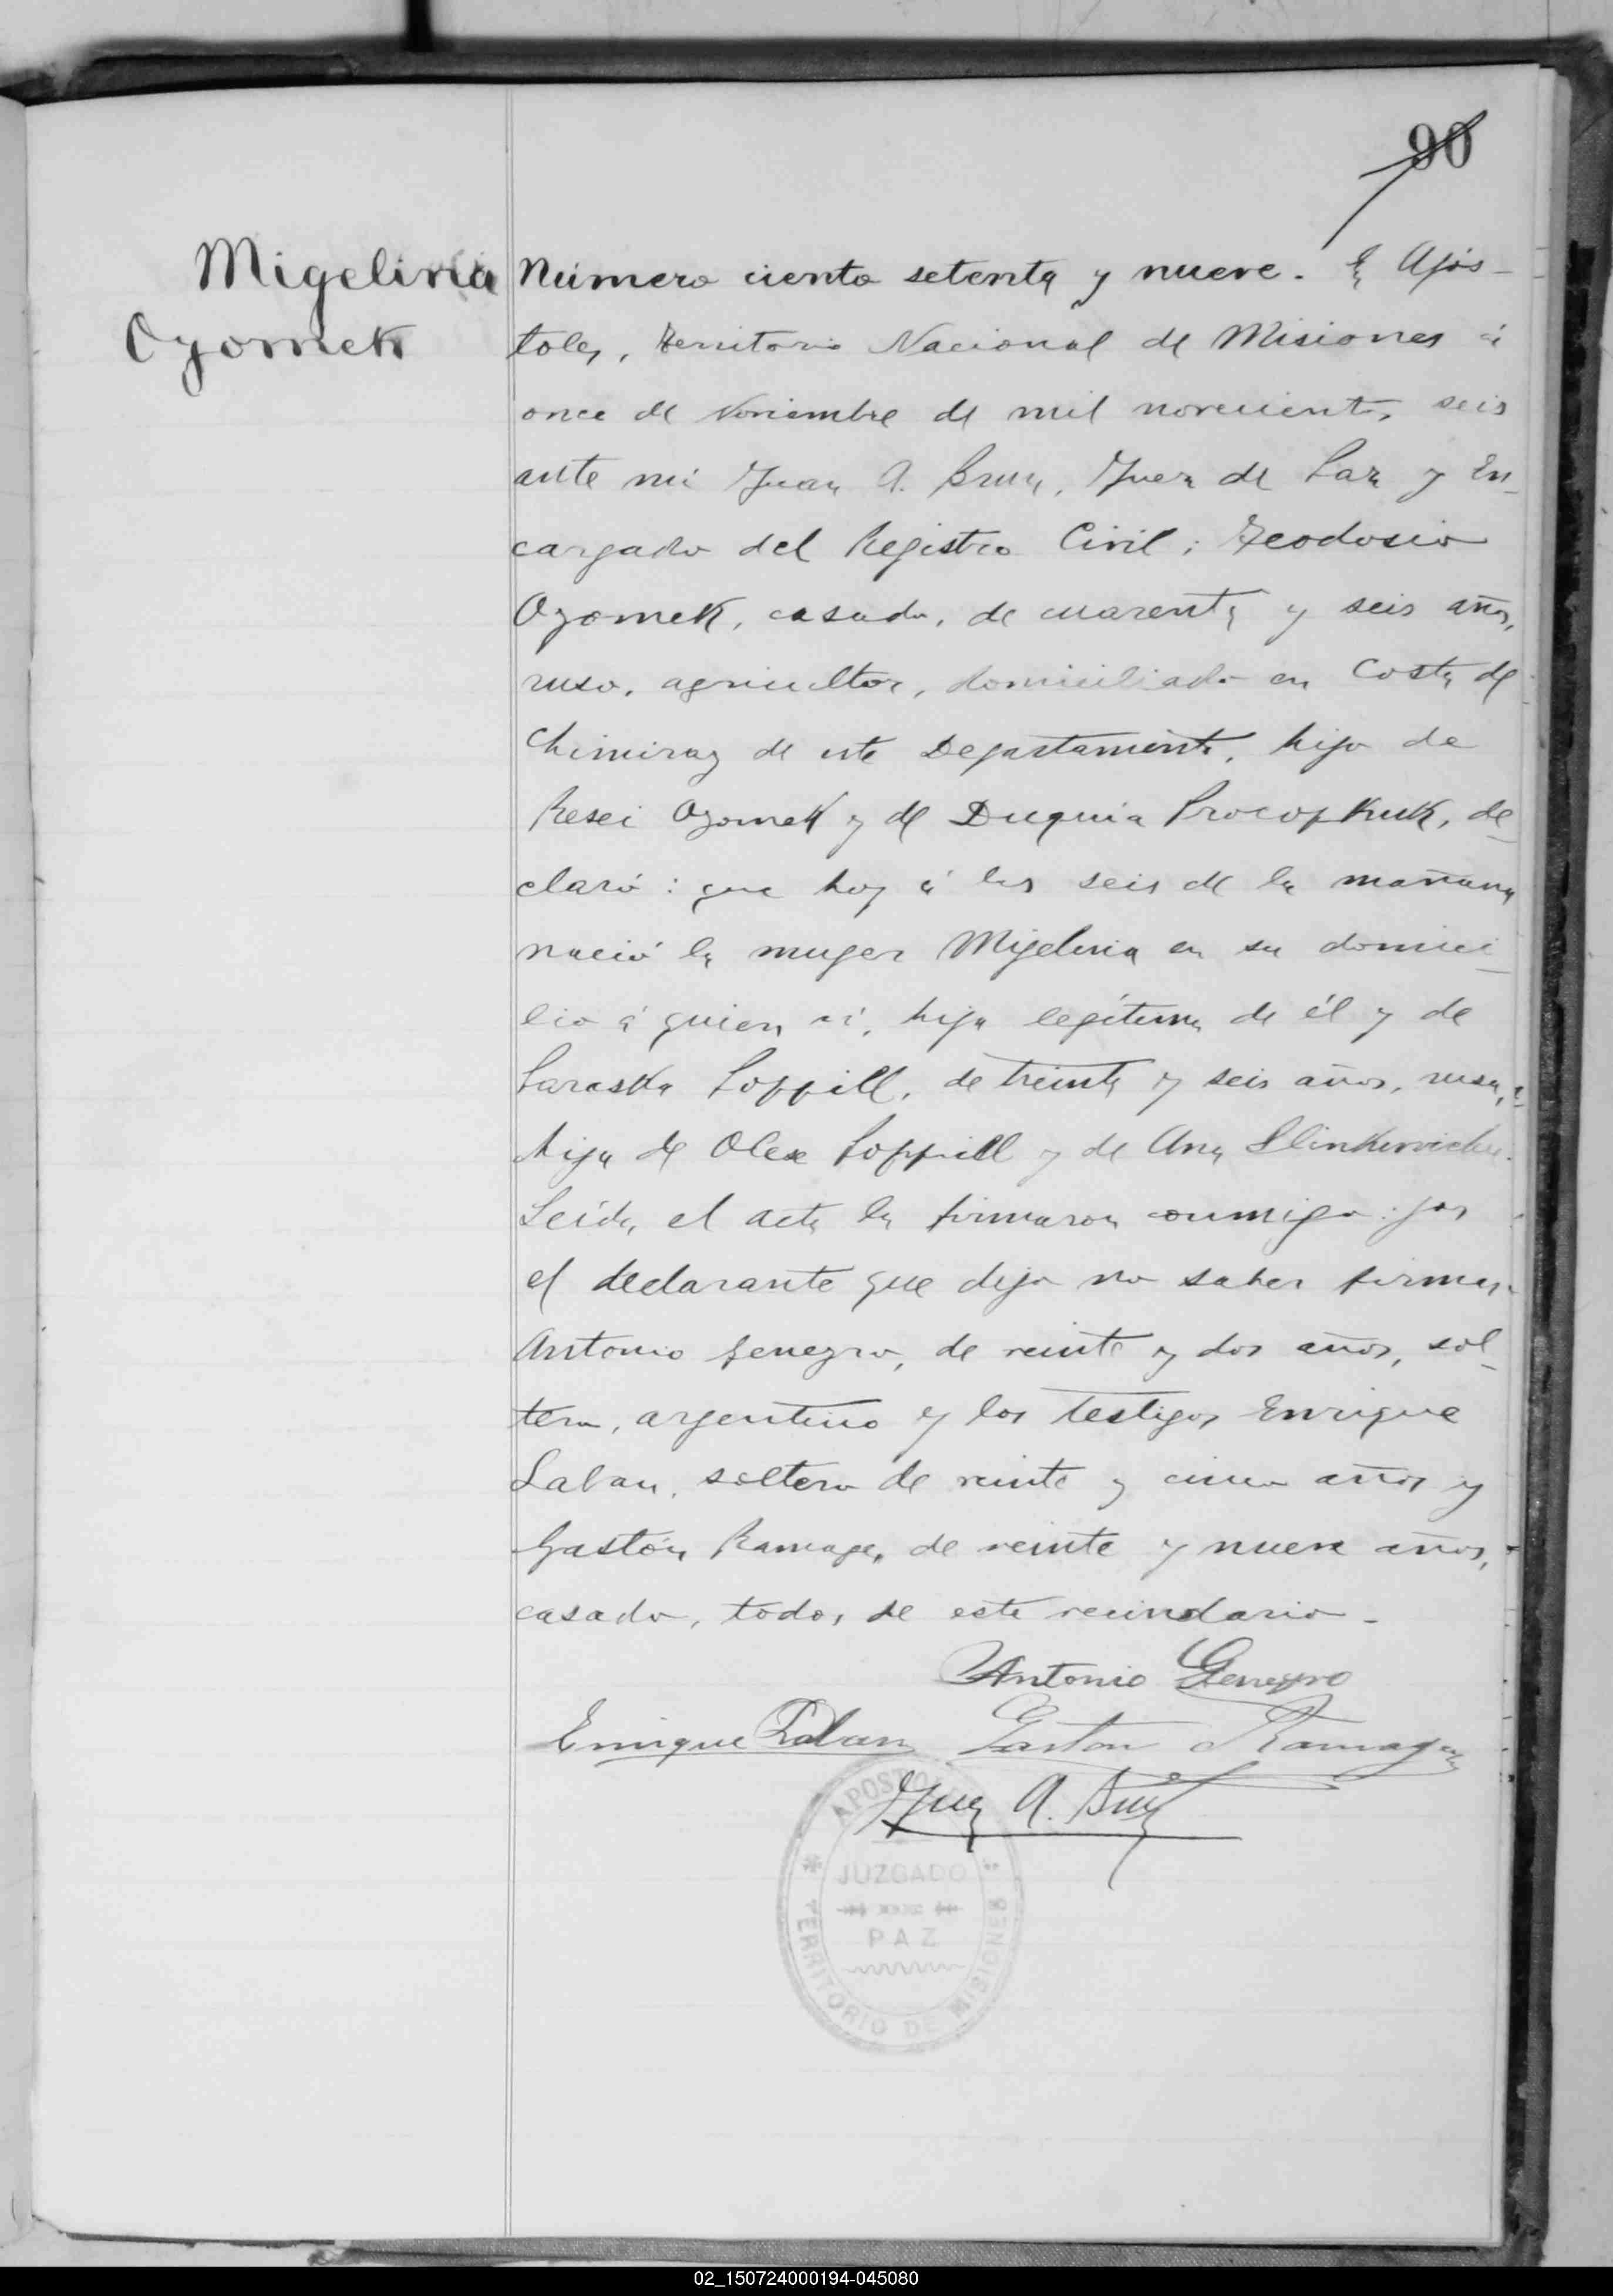 90
Migelina
Ozomek
Número ciento setenta y nueve. En Após-
toles, Territorio Nacional de Misiones á
once de Noviembre de mil novecientos seis
ante mi Juan A. Brun, Juez de Paz y En-
cargado del Registro Civil; Teodosio
Ozomek, casado, de cuarenta y seis años,
ruso, agricultor, domiciliado en Costa de
Chimiray de este Departamento, hijo de
Resei Ozomek y de Duquia Procopkuk, de-
claró: que hoy á las seis de la mañana
nació la muger Migelina en su domici-
lio á quien vi, hija legítima de él y de
Paraska Poppill, de treinta y seis años, rusa,
hija de Olexe Poppill y de Ana Slinkeviche.
Leida el acta la firmaron conmigo: por
el declarante que dijo no saber firmar
Antonio Genezro, de veinte y dos años, sol-
tero, argentino y los testigos Enrique
Laban, soltero de veinte y cinco años y
Gastón Ramage, de veinte y nueve años,
casado, todos de este vecindario-
Antonio Genezro
Enrique Laban Gaston Ramage
Juan A. Brun
APOSTOLES
JUZGADO
PAZ
TERRITORIO DE MISIONES
02_150724000194-045080